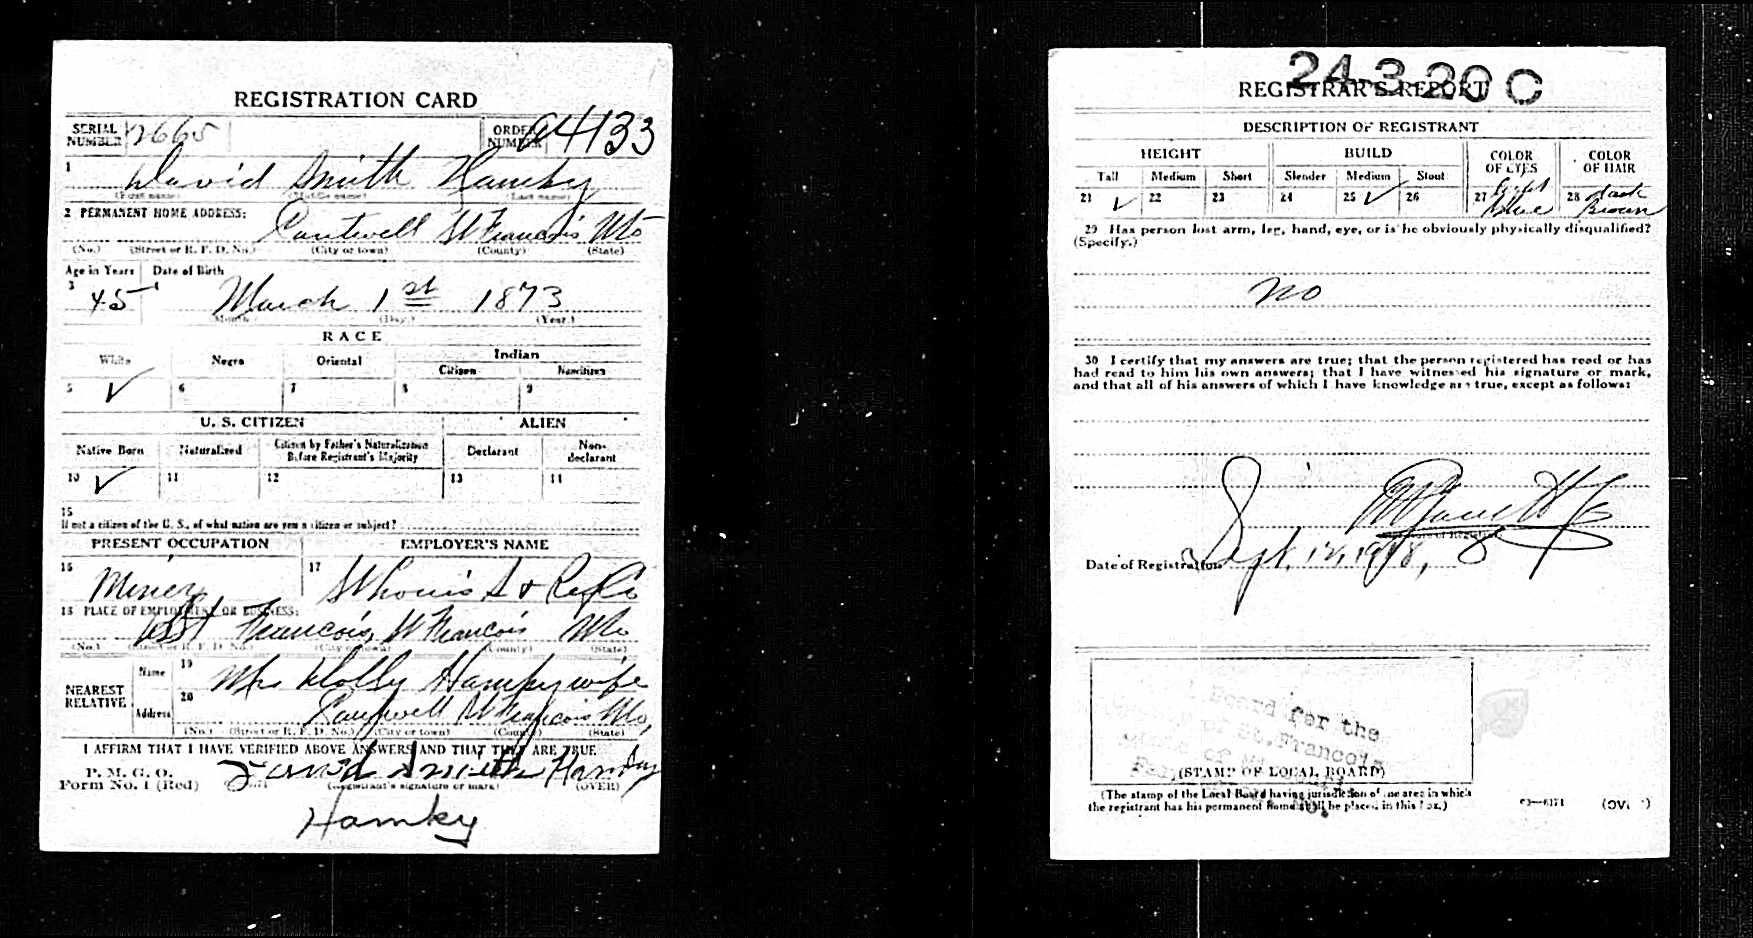 REGISTRATION CARD
SERIAL NUMBER 2665 ORDER NUMBER A4133
1 David Smith Hamby
(First name) (Middle name) (Last name)
2 PERMANENT HOME ADDRESS:
Cantwell St Francois Mo
(No.) (Street or R. F. D. No.) (City or town) (County) (State)
Age in Years Date of Birth
3 45 4 March 1st 1873
Month (Day.) (Year.)
RACE
White Negro Oriental Indian
Citizen Noncitizen
5 ✓ 6 7 8 9
U. S. CITIZEN ALIEN
Native Born Naturalized Citizen by Father's Naturalization Before Registrant's Majority Declarant Non-declarant
10 ✓ 11 12 13 14
15
If not a citizen of the U. S., of what nation are you a citizen or subject?
PRESENT OCCUPATION EMPLOYER'S NAME
16 Miner 17 St Louis S & Ref Co
18 PLACE OF EMPLOYMENT OR BUSINESS:
St Francois, St Francois Mo
(No.) (Street or R. F. D. No.) (City or town) (County) (State)
NEAREST RELATIVE Name 19 Mrs Dolly Hamby wife
Address 20 Cantwell St Francois Mo,
(No.) (Street or R. F. D. No.) (City or town) (County) (State)
I AFFIRM THAT I HAVE VERIFIED ABOVE ANSWERS AND THAT THEY ARE TRUE
P. M. G. O.
Form No. 1 (Red) David Smith Hamby
(Registrant's signature or mark) (OVER)
Hamky
24-3-20 C
REGISTRAR'S REPORT
DESCRIPTION OF REGISTRANT
HEIGHT BUILD COLOR OF EYES COLOR OF HAIR
Tall Medium Short Slender Medium Stout
21 ✓ 22 23 24 25 ✓ 26 27 Light Blue 28 dark Brown
29 Has person lost arm, leg, hand, eye, or is he obviously physically disqualified?
(Specify.)
no
30 I certify that my answers are true; that the person registered has read or has
had read to him his own answers; that I have witnessed his signature or mark,
and that all of his answers of which I have knowledge are true, except as follows:
Date of Registration Sept. 12, 1918,
Board for the
of St. Francois
State of
(STAMP OF LOCAL BOARD)
(The stamp of the Local Board having jurisdiction of the area in which
the registrant has his permanent home shall be placed in this box.)
03—6171 (OVER)